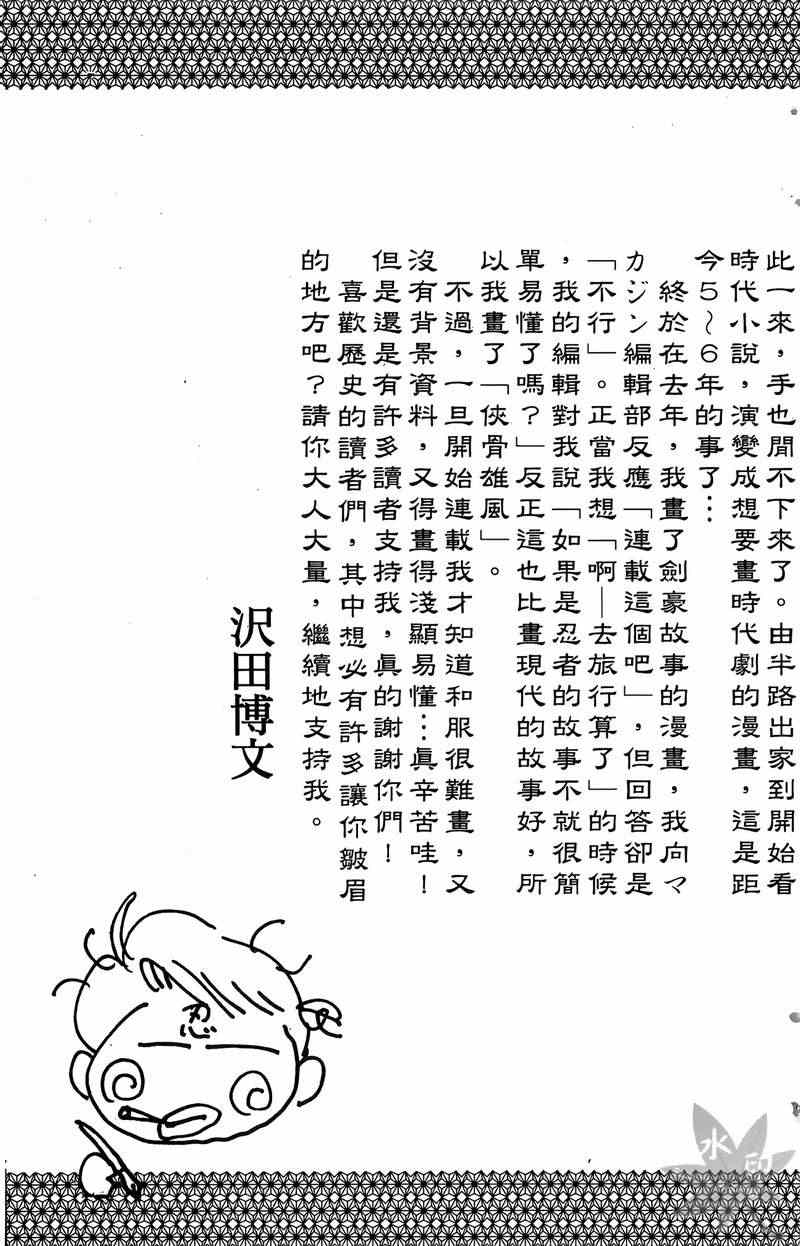 此一來，手也閒不下來了。由半路出家到開始看
時代小說，演變成想要畫時代劇的漫畫，這是距
今5～6年的事了…
終於在去年，我畫了劍豪故事的漫畫，我向マ
カジン編輯部反應「連載這個吧」，但回答卻是
「不行」。正當我想「啊—去旅行算了」的時候
，我的編輯對我說「如果是忍者的故事不就很簡
單易懂了嗎？」反正這也比畫現代的故事好，所
以我畫了「俠骨雄風」。
不過，一旦開始連載我才知道和服很難畫，又
沒有背景資料，又得畫得淺顯易懂…真辛苦哇！
但是還是有許多讀者支持我，真的謝謝你們！
喜歡歷史的讀者們，其中想必有許多讓你皺眉
的地方吧？請你大人大量，繼續地支持我。
沢田博文
忍
水印